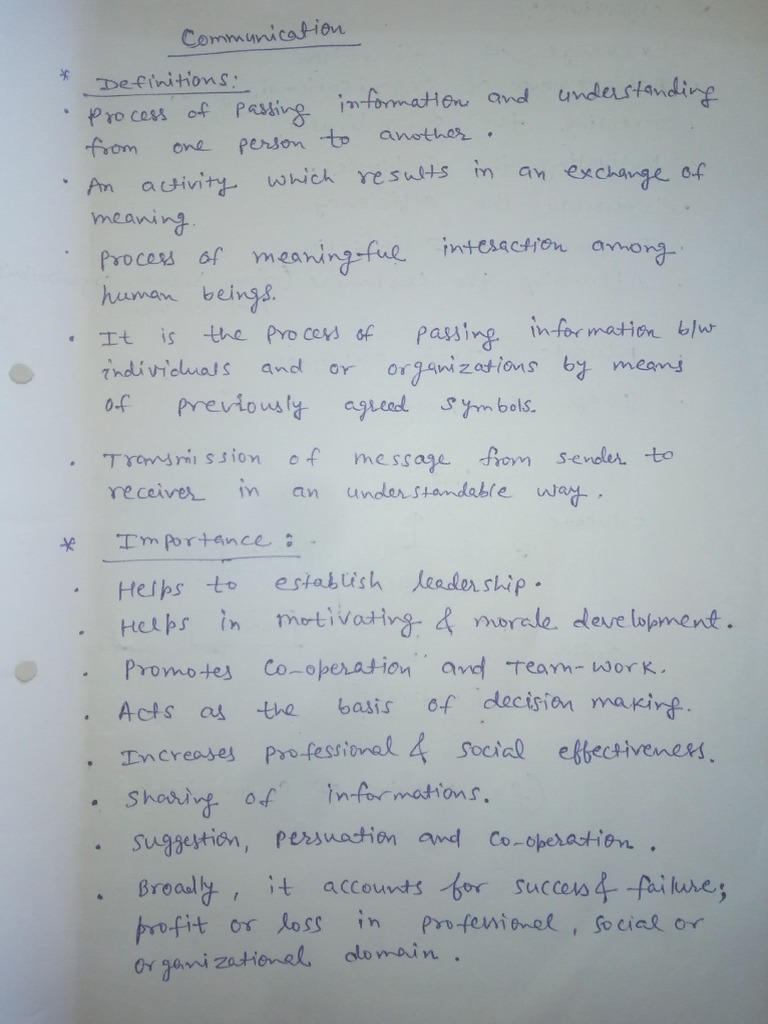 Communication
* Definitions:
• Process of passing information and understanding
from one person to another.
• An activity which results in an exchange of
meaning.
• Process of meaningful interaction among
human beings.
• It is the process of passing information b/w
individuals and or organizations by means
of previously agreed symbols.
• Transmission of message from sender to
receiver in an understandable way.
* Importance :
• Helps to establish leadership.
• Helps in motivating & morale development.
• Promotes co-operation and Team-work.
• Acts as the basis of decision making.
• Increases professional & social effectiveness.
• Sharing of informations.
• Suggestion, persuation and co-operation.
• Broadly, it accounts for success & failure;
profit or loss in professional, social or
organizational domain.